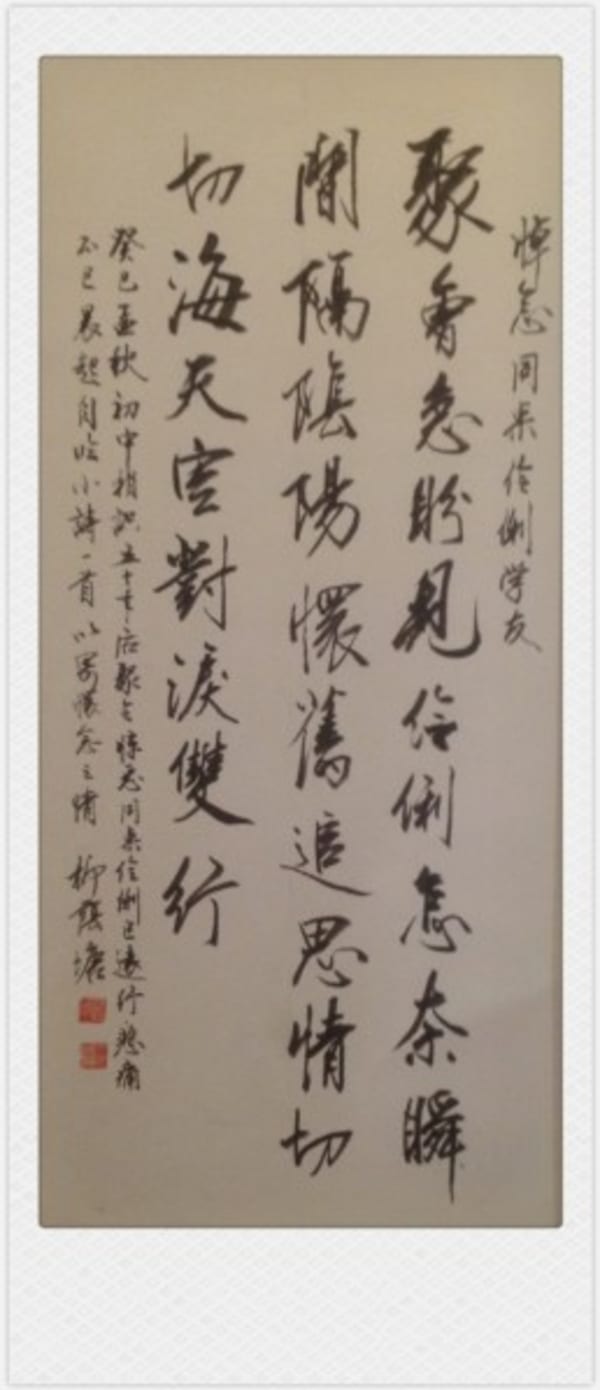 悼念同桌伶俐学友
聚會忽盼見伶俐怎奈瞬
間隔陰陽懷舊追思情切
切海天空對淚雙行
癸巳孟秋初中相識五十年后聚會悼念同桌伶俐已遠行悲痛
不已晨起自吟小詩一首以寄懷念之情 柳蔭塘